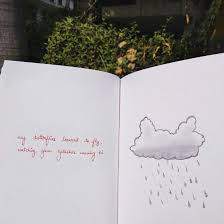 my butterflies learned to fly,
watching your eyelashes